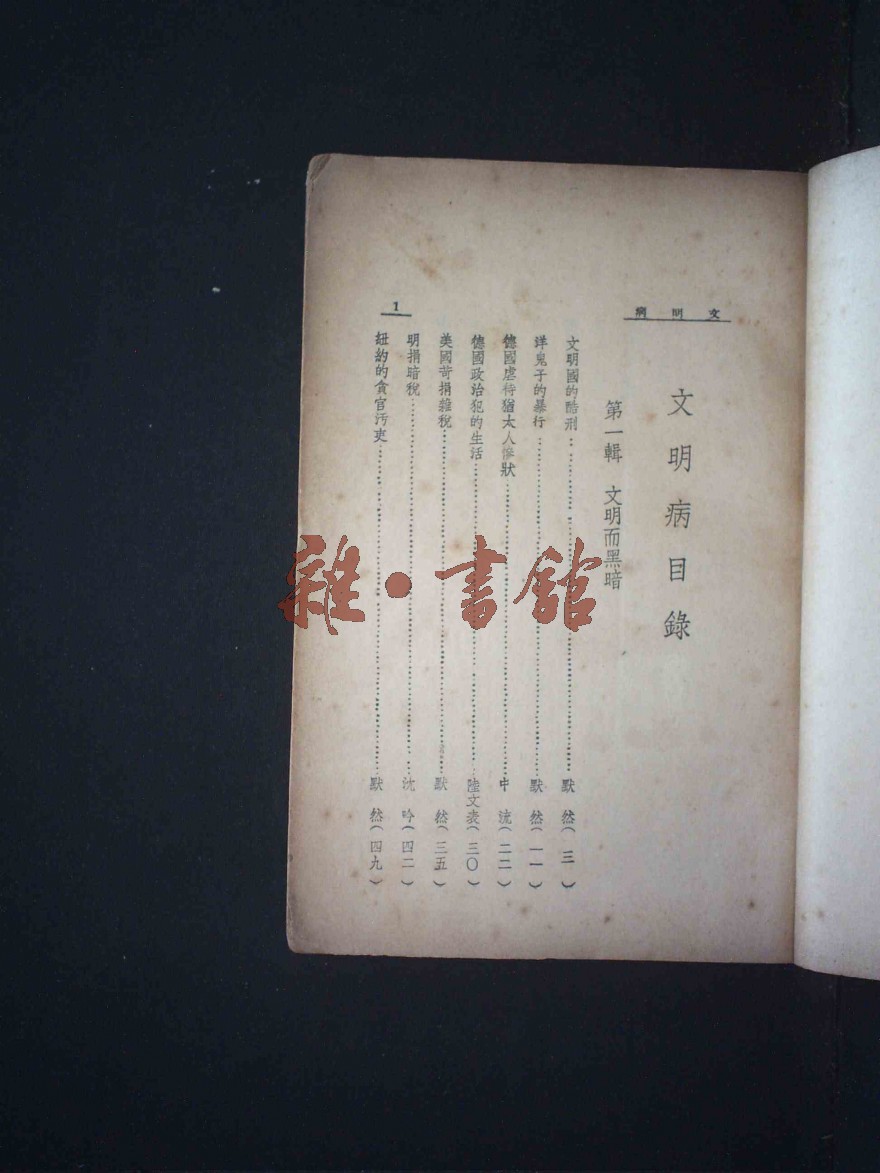 文明病
文明病目錄
第一輯 文明而黑暗
文明國的酷刑……默然（三）
洋鬼子的暴行……默然（一一）
德國虐待猶太人慘狀……中流（二二）
德國政治犯的生活……陸文表（三〇）
美國苛捐雜稅……默然（三五）
明捐暗稅……沈吟（四二）
紐約的貪官污吏……默然（四九）
1
雜·書館